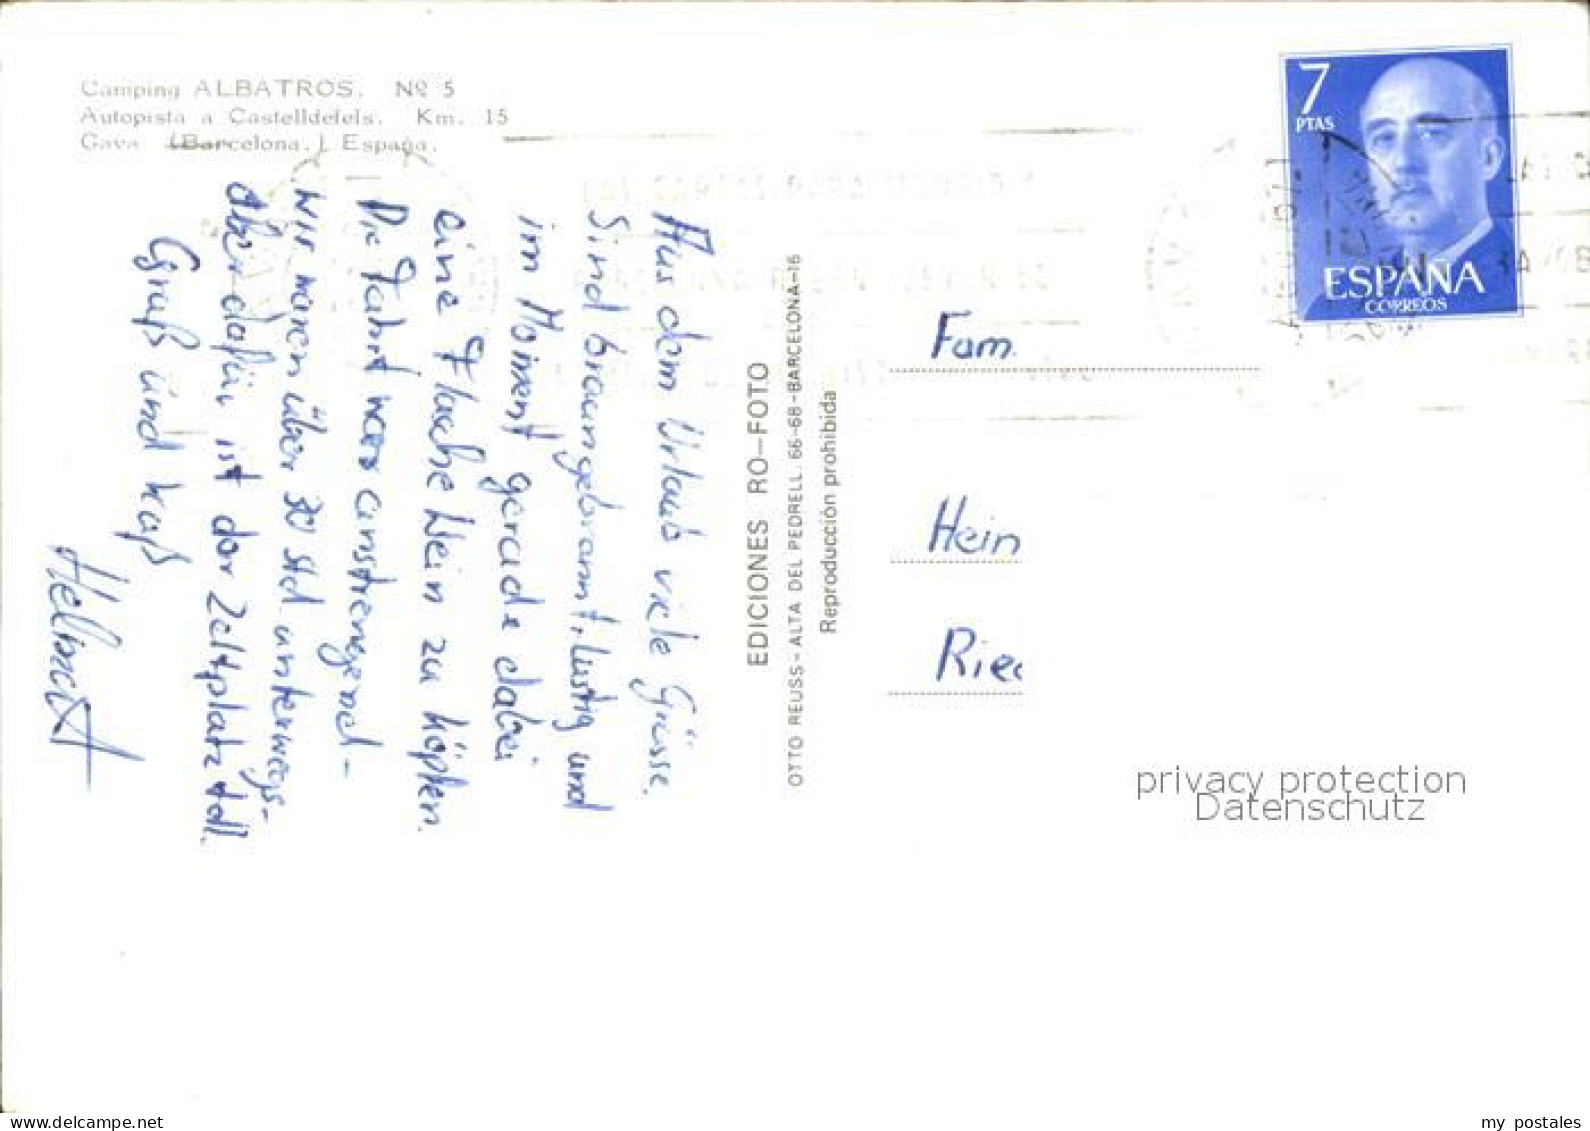 Camping ALBATROS. Nº 5
Autopista a Castelldefels. Km. 15
Gava (Barcelona.) España.
Aus dem Urlaub viele Grüsse.
Sind braungebrannt, lustig und
im Moment gerade dabei
eine Flasche Wein zu köpfen.
Die Fahrt war anstrengend-
wir waren über 30 Std. unterwegs-
aber dafür ist der Zeltplatz toll.
Gruß und Kuß
Helmut
EDICIONES RO-FOTO
OTTO REUSS-ALTA DEL PEDRELL. 66-68-BARCELONA-16
Reproducción prohibida
7
PTAS
ESPAÑA
CORREOS
Fam.
Hein
Ried
privacy protection
Datenschutz
my postales